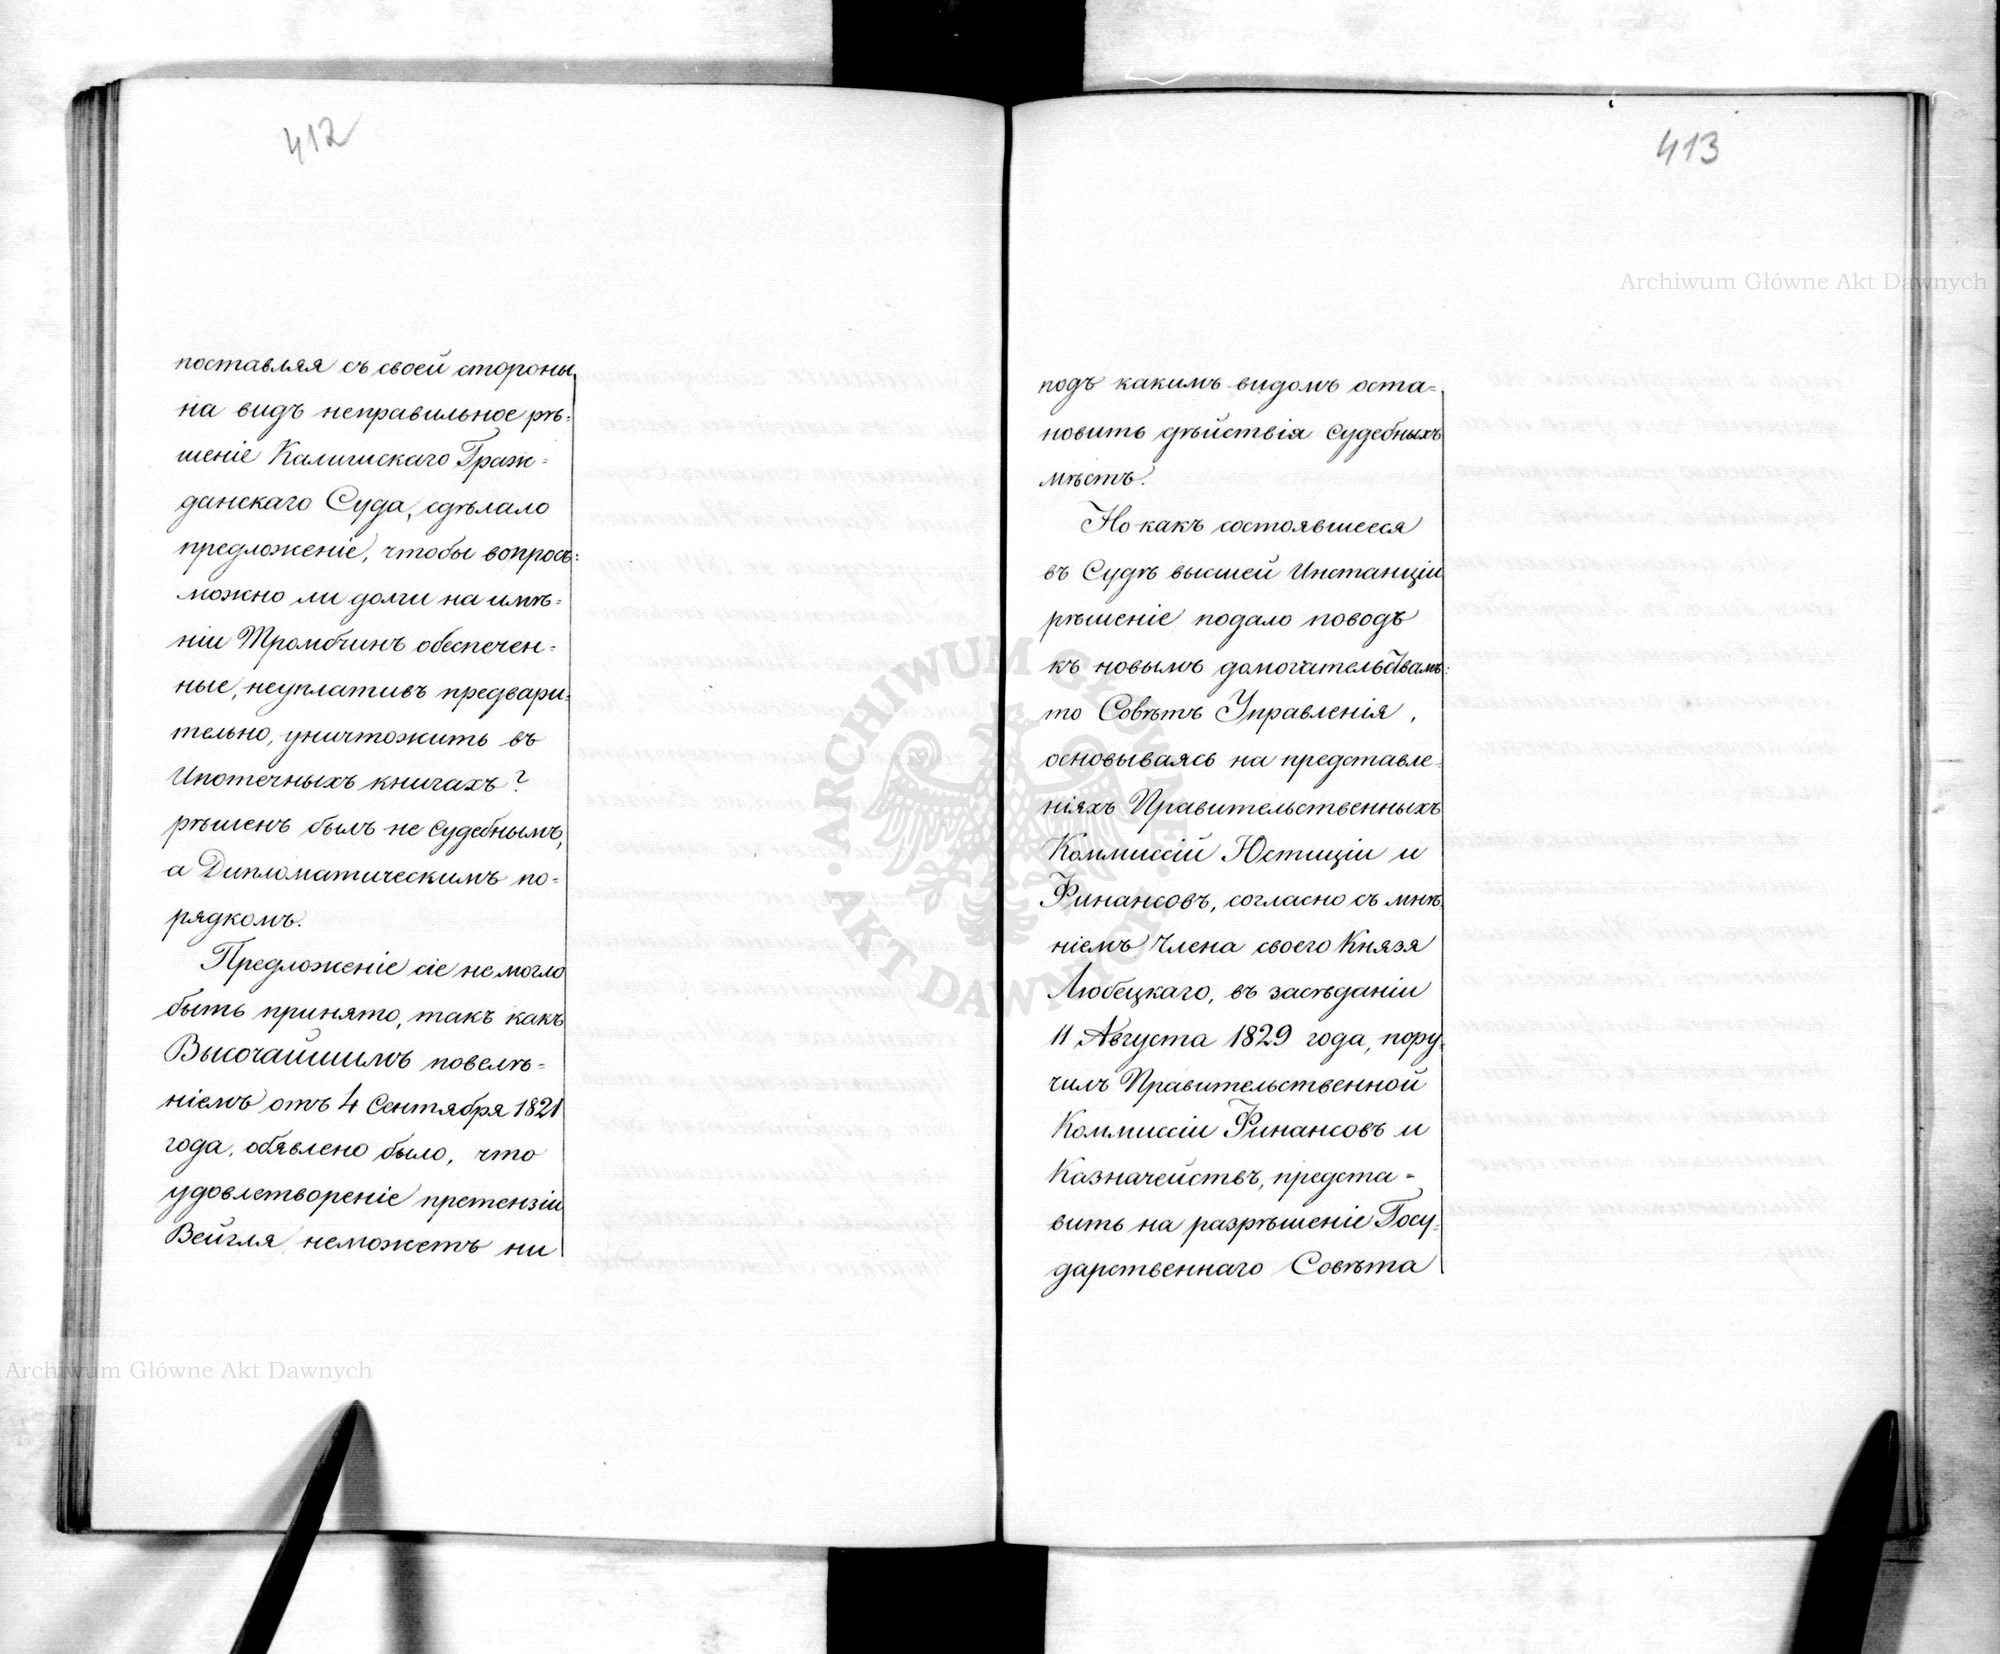 412
поставляя съ своей стороны
на видъ неправильное рѣ-
шеніе Калишскаго Граж-
данскаго Суда, сдѣлало
предложеніе, чтобы вопросъ:
можно ли долги на имѣ-
ніи Тромбчинъ обеспечен-
ные, неуплативъ предвари-
тельно, уничтожить въ
Ипотечныхъ книгахъ?
рѣшенъ былъ не Судебнымъ,
а Дипломатическимъ по-
рядкомъ.
Предложеніе сіе не могло
быть принято, такъ какъ
Высочайшимъ повелѣ-
ніемъ отъ 4 Сентября 1821
года, объявлено было, что
удовлетвореніе претензіи
Вейгля неможетъ ни
413
подъ какимъ видомъ оста-
новить дѣйствія Судебныхъ
мѣстъ.
Но какъ состоявшееся
въ Судѣ высшей Инстанціи
рѣшеніе подало поводъ
къ новымъ домогательствамъ:
то Совѣтъ Управленія,
основываясь на представле-
ніяхъ Правительственныхъ
Коммиссій Юстиціи и
Финансовъ, согласно съ мнѣ-
ніемъ Члена своего Князя
Любецкаго, въ засѣданіи
11 Августа 1829 года, пору-
чилъ Правительственной
Коммиссіи Финансовъ и
Казначействъ, предста-
вить на разрѣшеніе Госу-
дарственнаго Совѣта
Archiwum Główne Akt Dawnych
Archiwum Główne Akt Dawnych
ARCHIWUM GŁÓWNE
AKT DAWNYCH